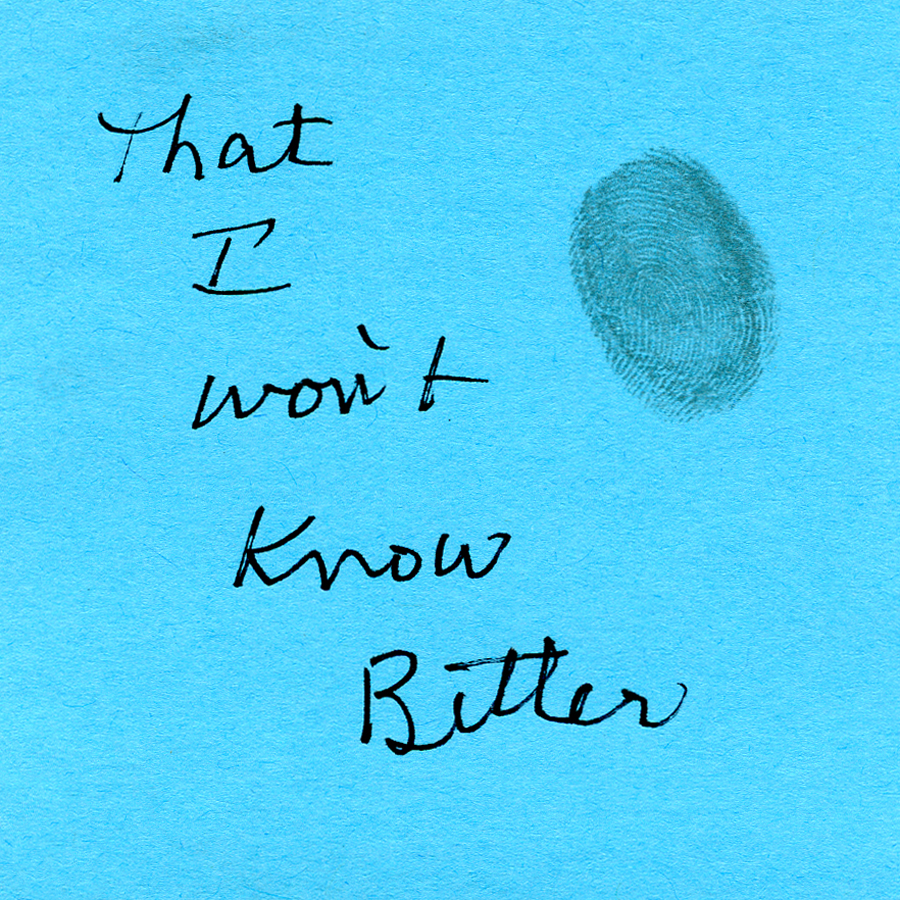 That
I
won't
Know
Bitter